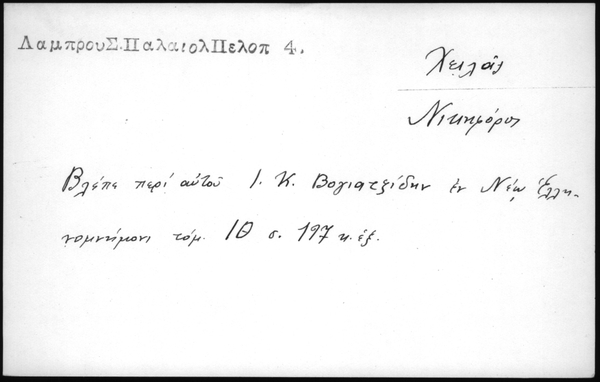 ΛαμπρουΣ.ΠαλαιολΠελοπ 4.
Χειλᾶς
Νικηφόρος
Βλέπε περί αὐτοῦ Ι. Κ. Βογιατζίδην ἐν Νέῳ Ἑλλη-
νομνήμονι τόμ. ΙΘ σ. 197 κ. ἑξ.